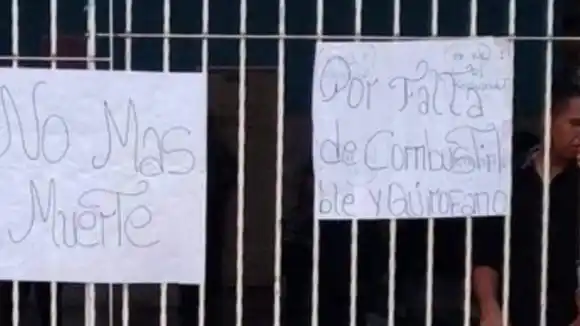 No Mas
Muerte
Por Falta
de Combusti
ble y Quirofano